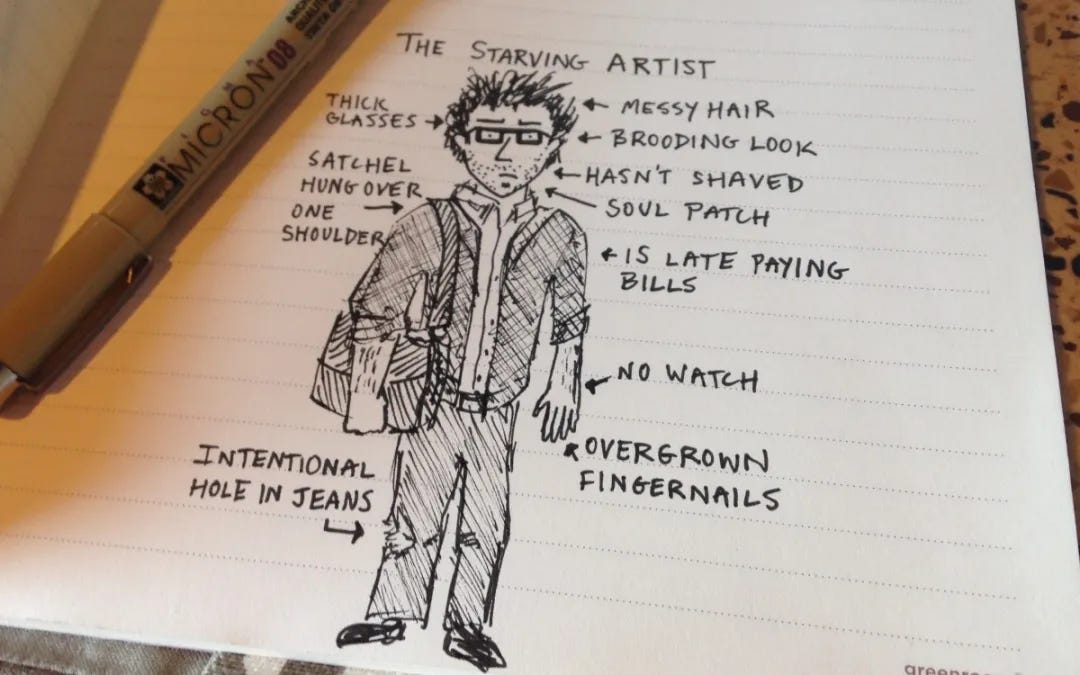 THE STARVING ARTIST
THICK
GLASSES
MESSY HAIR
BROODING LOOK
SATCHEL
HUNG OVER
ONE
SHOULDER
HASN'T SHAVED
SOUL PATCH
IS LATE PAYING
BILLS
NO WATCH
OVERGROWN
FINGERNAILS
INTENTIONAL
HOLE IN JEANS
MICRON 08